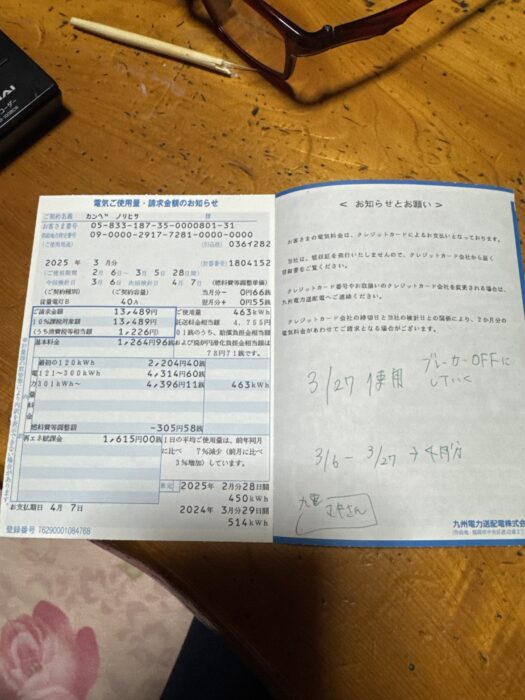 電気ご使用量・請求金額のお知らせ
ご契約名義 カンベ ノリヒサ 様
お客さま番号 05-833-187-35-0000801-31
09-0000-2917-7281-0000-0000
036Y282
2025 年 3 月分
計器番号 1804152
(ご使用期間 2月 6日〜 3月 5日 28日間)
今回検針日 3月 6日 次回検針日 4月 7日
(ご契約種別) (ご契約容量) (燃料費等調整単価)
従量電灯B 40A
当月分− 0円66銭
翌月分+ 0円55銭
ご請求金額 13,489円
10%課税対象額 13,489円
(うち消費税等相当額 1,226円)
ご使用量 463kWh
託送料金相当額 4,755円
基本料金 1,264円96銭
78円71銭です。
電力量料金
最初の120kWh 2,204円40銭
121〜300kWh 4,314円60銭
301kWh〜 4,396円11銭
463kWh
燃料費等調整額 -305円58銭
再エネ賦課金 1,615円00銭
1日の平均ご使用量は、前年同月に比べ 7%減少(前月に比べ 3%増加)しています。
2025年 2月分28日間
450kWh
2024年 3月分29日間
514kWh
お支払期日 4月 7日
登録番号 T6290001084768
< お知らせとお願い >
お客さまの電気料金は、クレジットカードによるお支払いとなっております。
当社は、領収証を発行いたしませんので、クレジットカード会社から届く
クレジットカード番号やお取扱いのクレジットカード会社を変更される場合は、
九州電力送配電へご連絡ください。
クレジットカード会社の締切日と当社の検針日との関係により、2か月分の
電気料金があわせてご請求となる場合がございます。
3/27 使用
ブレーカーOFFに
していく
3/6 - 3/27 → 4月分
九電
九州電力送配電株式会